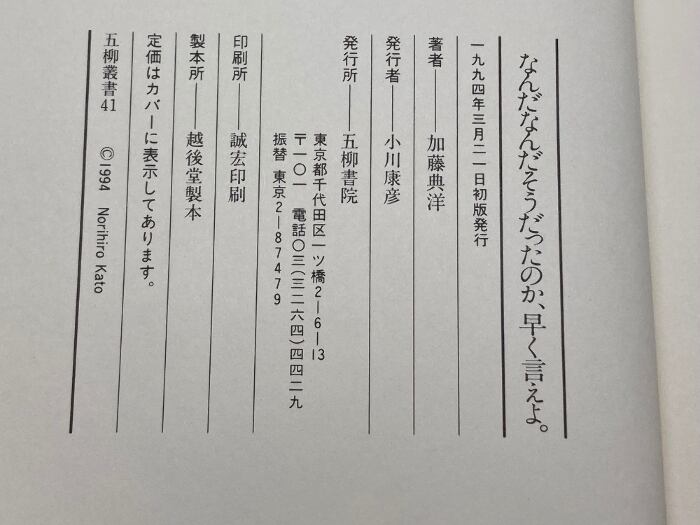 なんだなんだそうだったのか、早く言えよ。
一九九四年三月二一日初版発行
著者──加藤典洋
発行者──小川康彦
発行所──五柳書院
東京都千代田区一ツ橋2─6─13
〒一〇一　電話〇三(三二六四)四四二九
振替　東京2─87479
印刷所──誠宏印刷
製本所──越後堂製本
定価はカバーに表示してあります。
五柳叢書41　©1994　Norihiro Kato